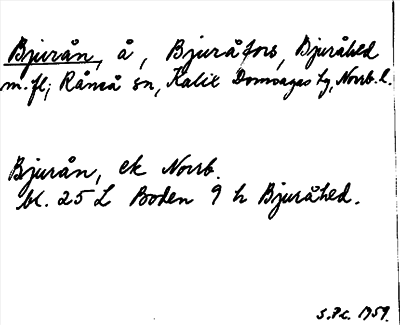 Bjurån, å, Bjuråfors, Bjuråhed
m.fl; Råneå sn, Kalix Domsagas hg, Norrb. l.
Bjurån, ek Norrb.
bl. 25 L Boden 9 h Bjuråhed.
S.P.C. 1959.